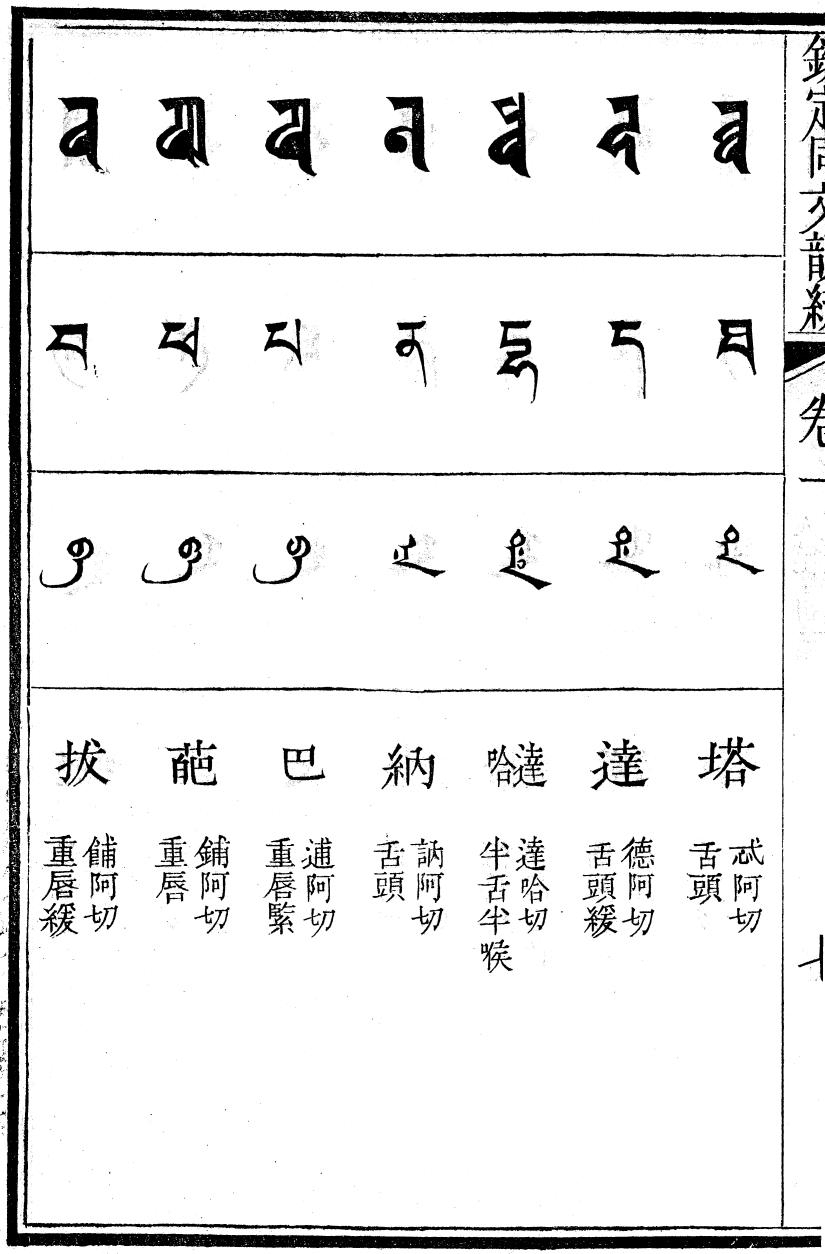 欽定同文韻統
卷一
七
थ
ཐ
塔
忒阿切
舌頭
द
ད
達
德阿切
舌頭緩
ध
དྷ
達哈
達哈切
半舌半喉
न
ན
納
訥阿切
舌頭
प
པ
巴
逋阿切
重唇緊
फ
ཕ
葩
鋪阿切
重唇
ब
བ
拔
餔阿切
重唇緩